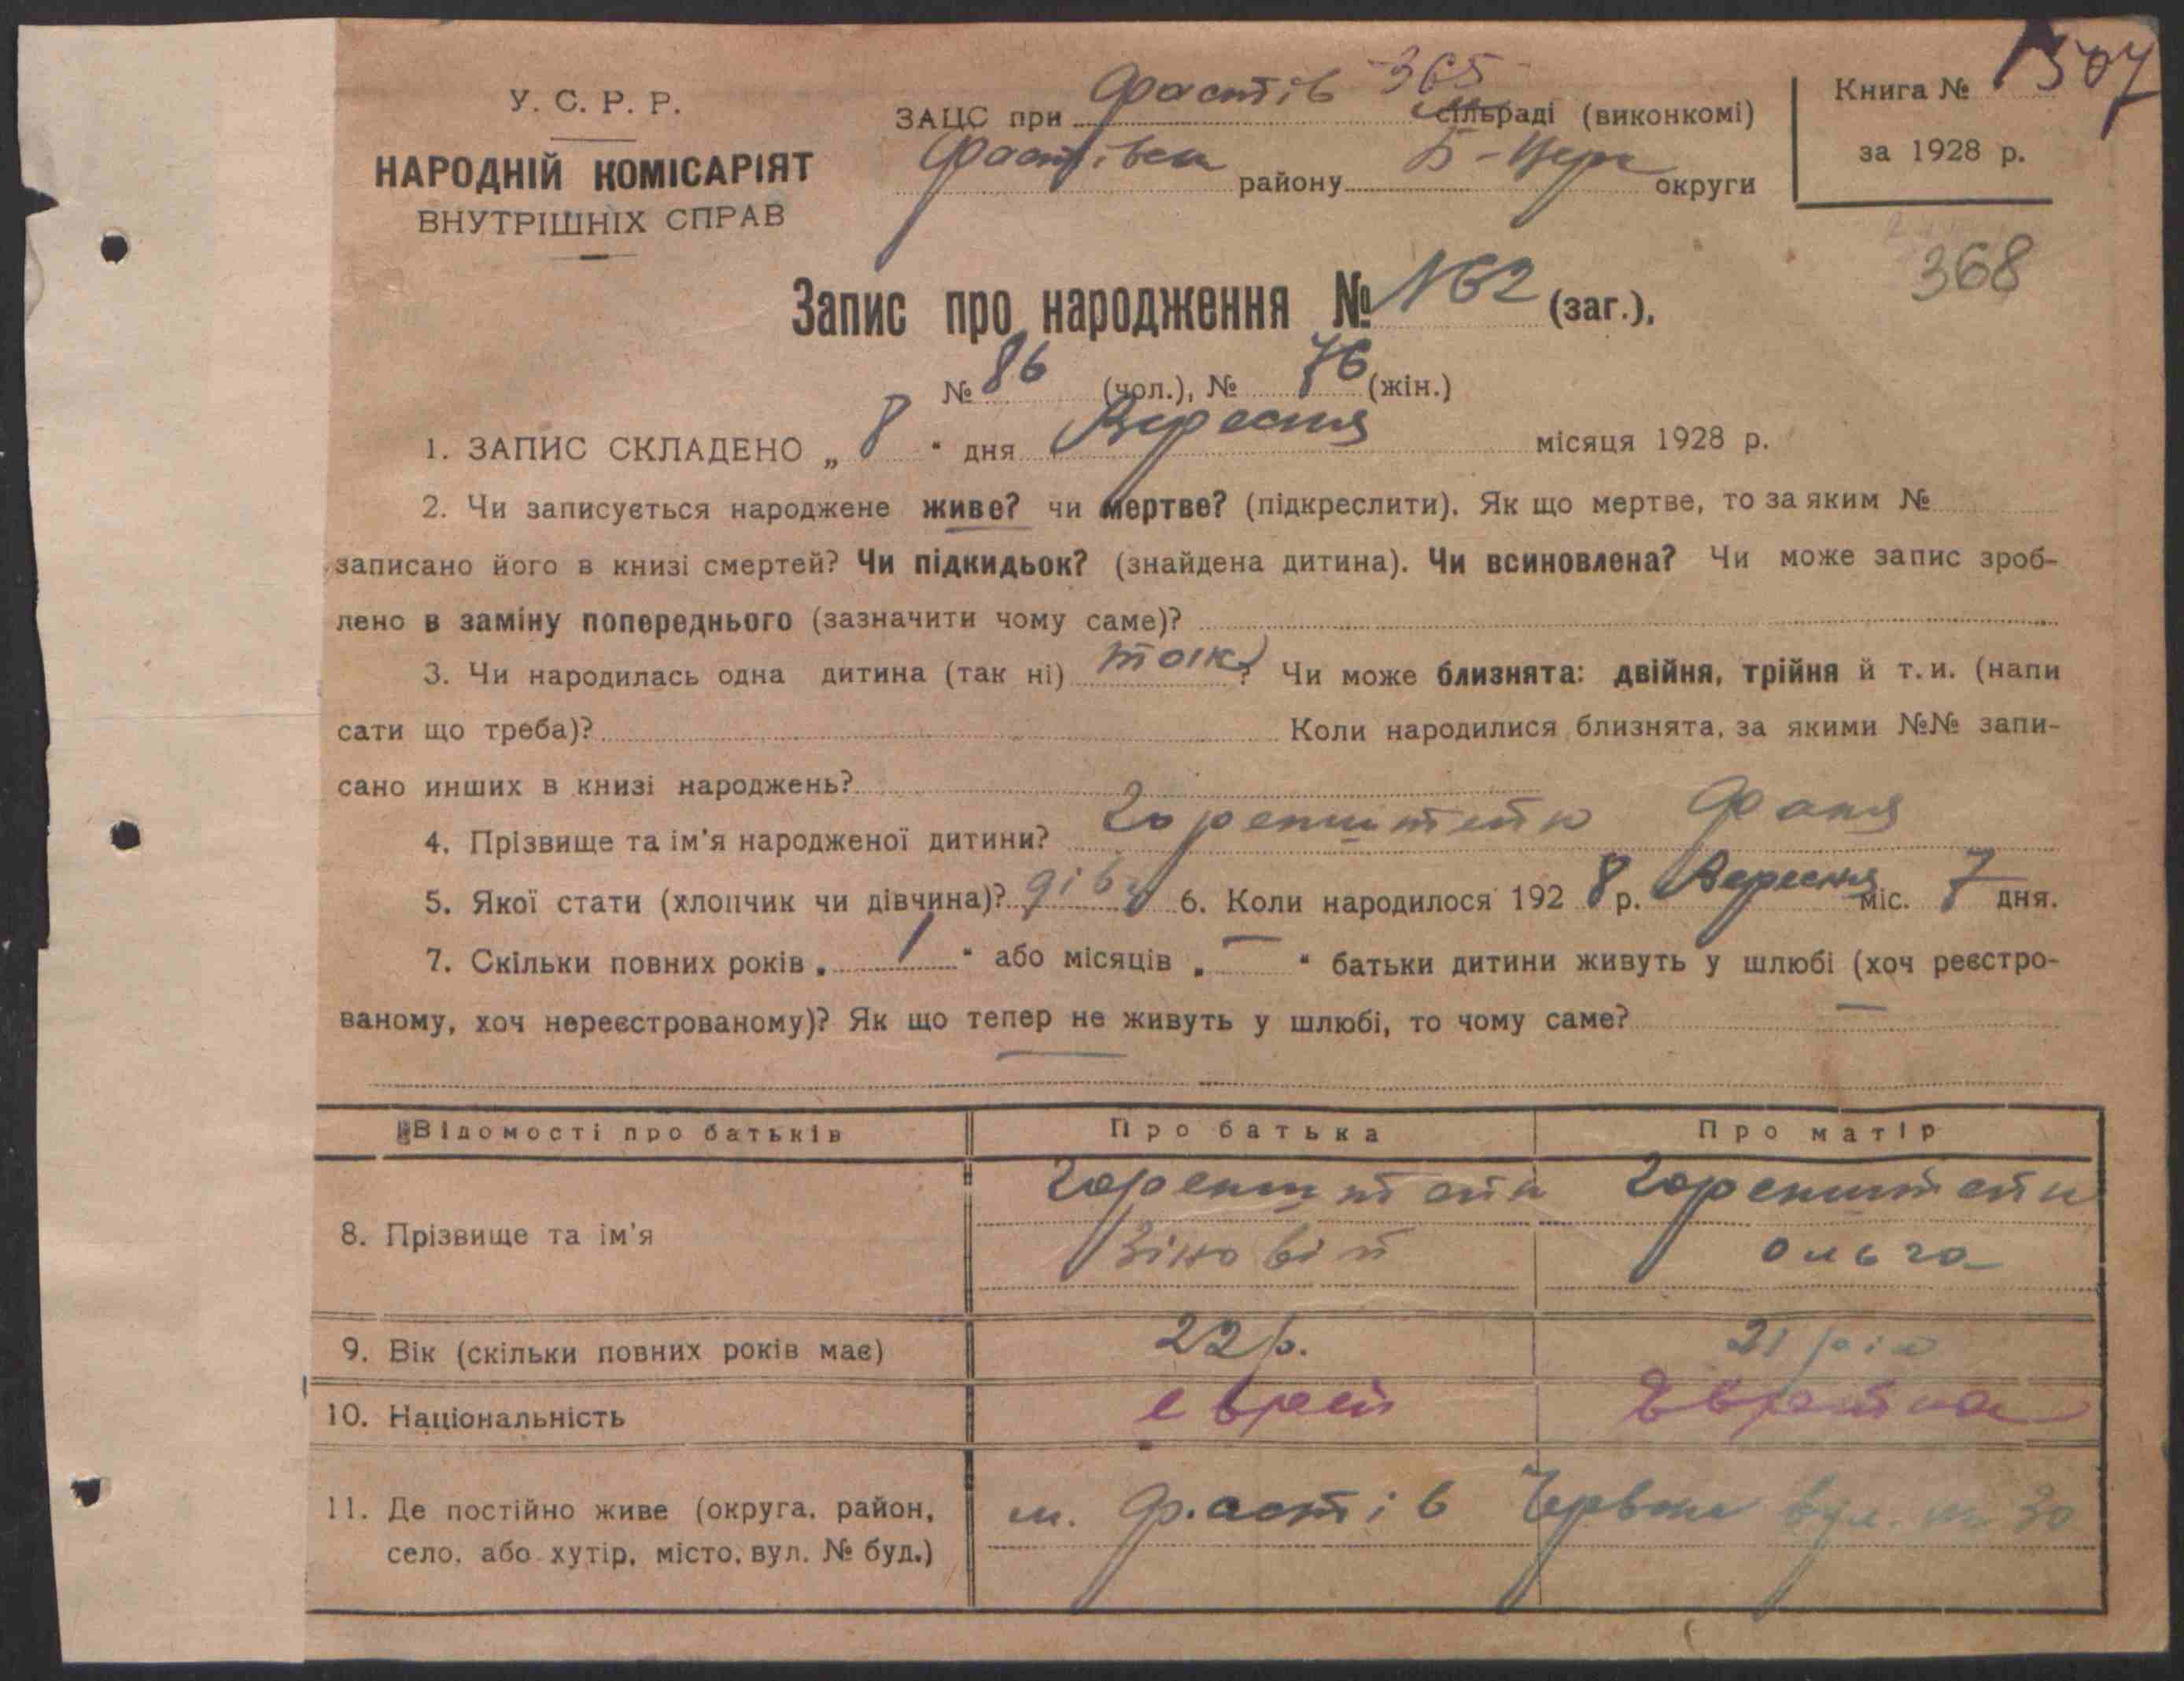 У. С. Р. Р.
НАРОДНІЙ КОМІСАРІЯТ
ВНУТРІШНІХ СПРАВ
ЗАЦС при Фастів 365 сільраді (виконкомі)
Фастівськ району Б-Церк округи
Книга № 1507
за 1928 р.
368
Запис про народження № 162 (заг.),
№ 86 (чол.), № 76 (жін.)
1. ЗАПИС СКЛАДЕНО „ 8 “ дня Вересня місяця 1928 р.
2. Чи записується народжене живе? чи мертве? (підкреслити). Як що мертве, то за яким №
записано його в книзі смертей? Чи підкидьок? (знайдена дитина). Чи всиновлена? Чи може запис зроб-
лено в заміну попереднього (зазначити чому саме)?
3. Чи народилась одна дитина (так ні) так ? Чи може близнята: двійня, трійня й т. и. (напи
сати що треба)? Коли народилися близнята, за якими №№ запи-
сано инших в книзі народжень?
4. Прізвище та ім'я народженої дитини? Горенштейн Фаня
5. Якої стати (хлопчик чи дівчина)? дівч 6. Коли народилося 192 8 р. Вересня міс. 7 дня.
7. Скільки повних років „ 1 “ або місяців „ — “ батьки дитини живуть у шлюбі (хоч реєстро-
ваному, хоч нереєстрованому)? Як що тепер не живуть у шлюбі, то чому саме? —
Відомості про батьків Про батька Про матір
8. Прізвище та ім'я Горенштейн Горенштейн
Зіновій Ольга
9. Вік (скільки повних років має) 22 р. 21 рік
10. Національність єврей Єврейка
11. Де постійно живе (округа, район, м. Фастів Червона вул. № 30
село, або хутір, місто, вул. № буд.)